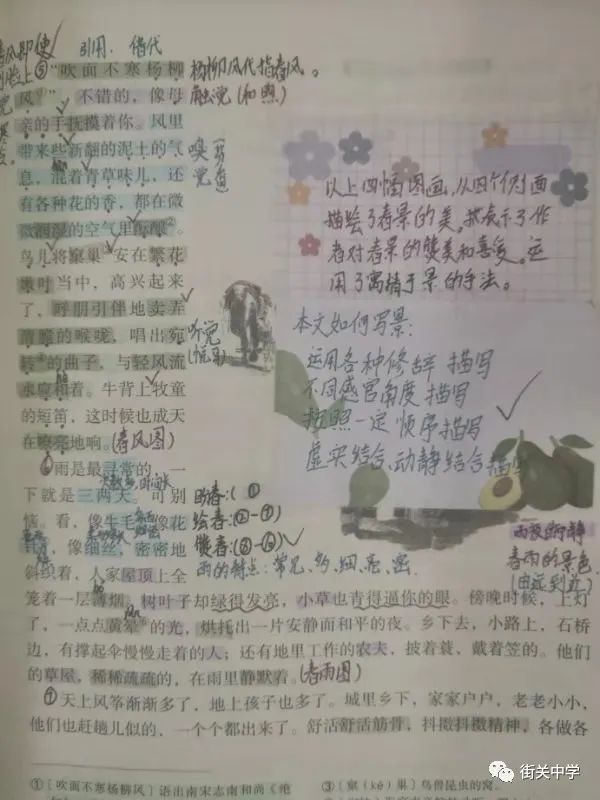 引用、借代
⑤“吹面不寒杨柳
杨柳风代指春风。
风①”,不错的,像母
触觉(和煦)
亲的手抚摸着你。风里
带来些新翻的泥土的气
嗅
觉
息,混着青草味儿,还
有各种花的香,都在微
微润湿的空气里酝酿②。
鸟儿将窠巢③安在繁花
嫩叶当中,高兴起来
了,呼朋引伴地卖弄
清脆的喉咙,唱出宛
听觉
(悦耳)
转④的曲子,与轻风流
水应和着。牛背上牧童
的短笛,这时候也成天
在嘹亮地响。(春风图)
以上四幅图画,从四个侧面
描绘了春景的美。
者对春景的赞美和喜爱。运
用了寓情于景的手法。
本文如何写景:
运用各种修辞描写
不同感官角度描写
按照一定顺序描写
虚实结合、动静结合描写
⑥雨是最寻常的,一
下就是三两天。可别
盼春:(①
恼。看,像牛毛,像花
绘春:(②-⑦)
针,像细丝,密密地
赞春:(⑧-⑩)
雨的特点:常见、多、细、亮、密.
春雨的景色.
(由近到远)
斜织着,人家屋顶上全
笼着一层薄烟。树叶子却绿得发亮,小草也青得逼你的眼。傍晚时候,上灯
了,一点点黄晕⑥的光,烘托出一片安静而和平的夜。乡下去,小路上,石桥
边,有撑起伞慢慢走着的人;还有地里工作的农夫,披着蓑、戴着笠的。他们
的草屋,稀稀疏疏的,在雨里静默着。(春雨图)
⑦天上风筝渐渐多了,地上孩子也多了。城里乡下,家家户户,老老小小,
他们也赶趟儿似的,一个个都出来了。舒活舒活筋骨,抖擞抖擞精神,各做各
①〔吹面不寒杨柳风〕语出南宋志南和尚《绝
③〔窠(kē)巢〕鸟兽昆虫的窝。
街关中学